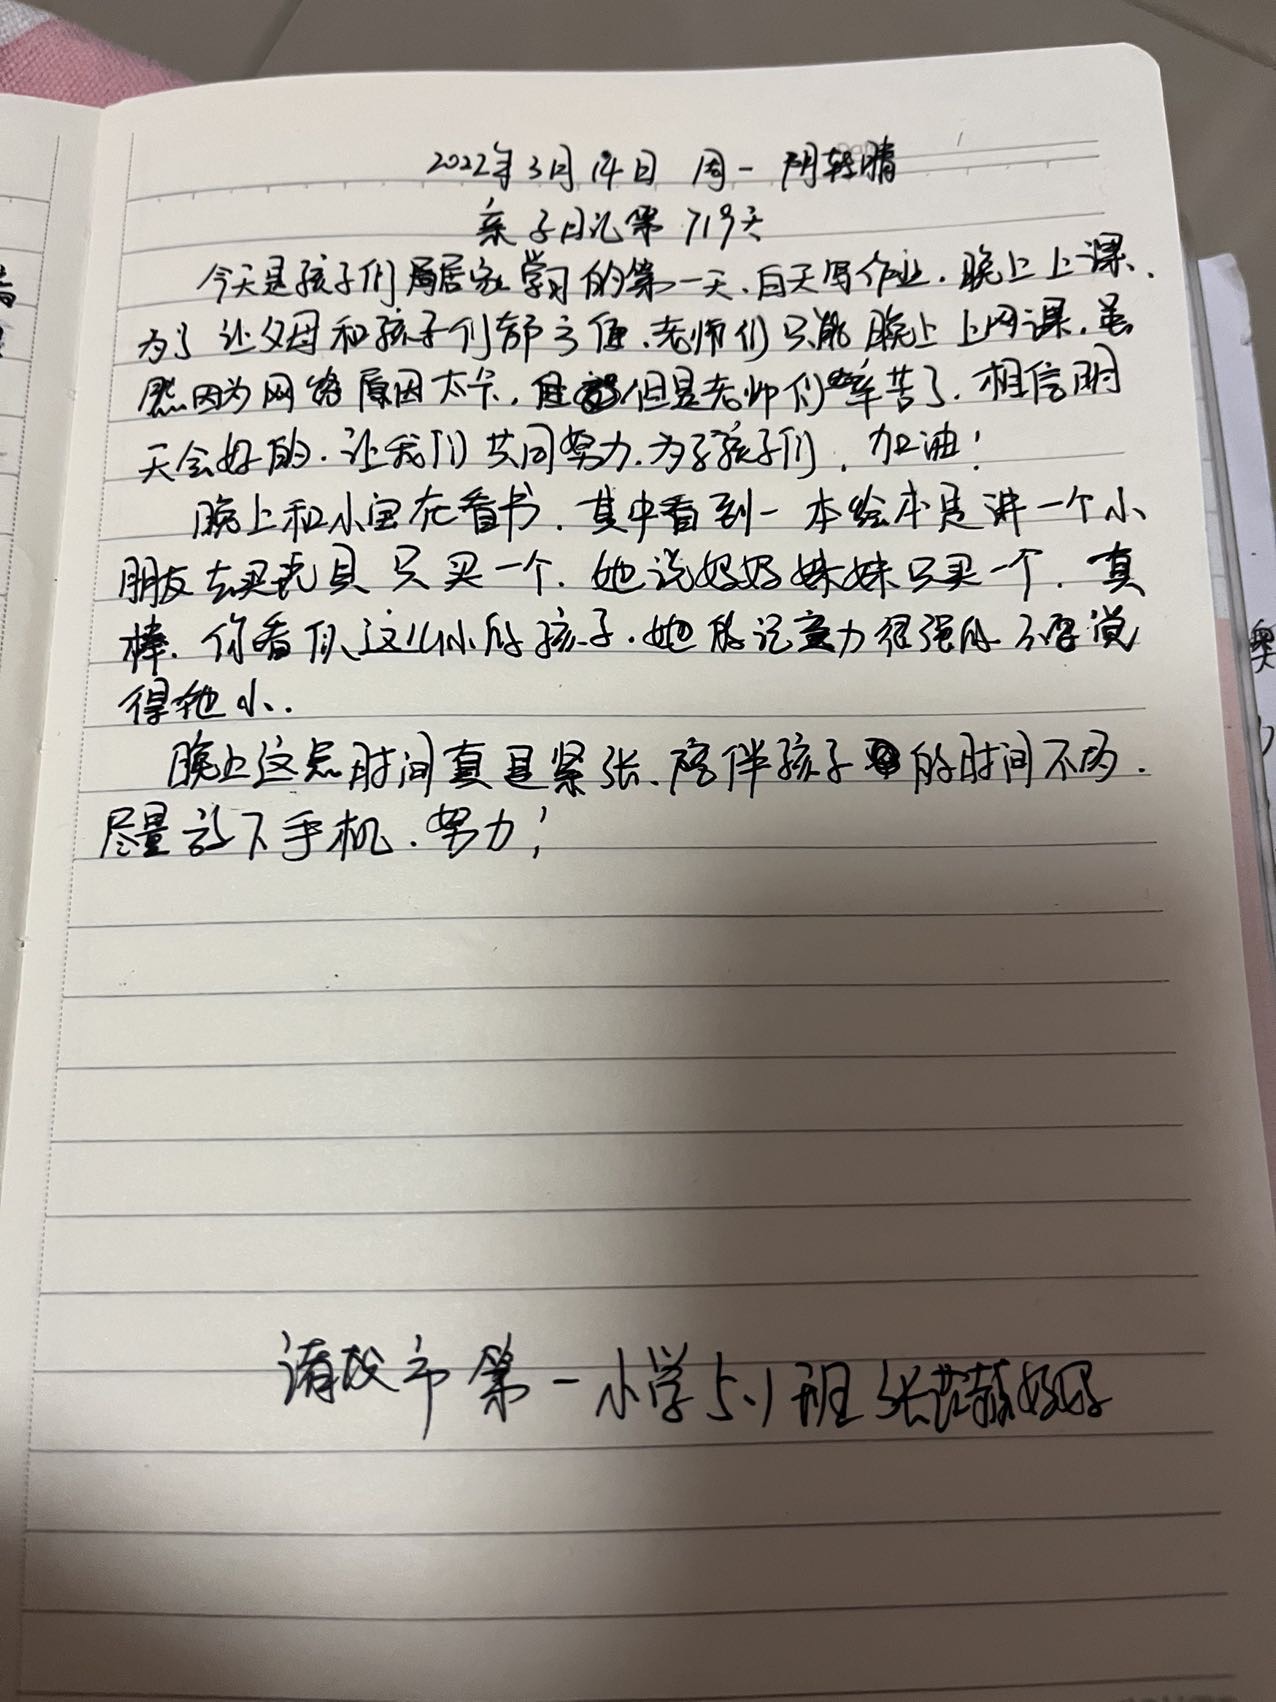 2022年3月14日 周一 阴转晴
亲子日记第719天
今天是孩子们居家学习的第一天、白天写作业.晚上上课、
为了让父母和孩子们都方便.老师们只能晚上上网课.虽
然因为网络原因太卡.但是老师们辛苦了.相信明
天会好的.让我们共同努力.为了孩子们、加油!
晚上和小宝在看书.其中看到一本绘本是讲一个小
朋友去买玩具只买一个.她说妈妈妹妹只买一个.真
棒.你看似这么小的孩子.她的记意力很强的不要觉
得他小.
晚上这点时间真是紧张.陪伴孩子的时间不多.
尽量放下手机.努力!
市第一小学5.1班张
奥